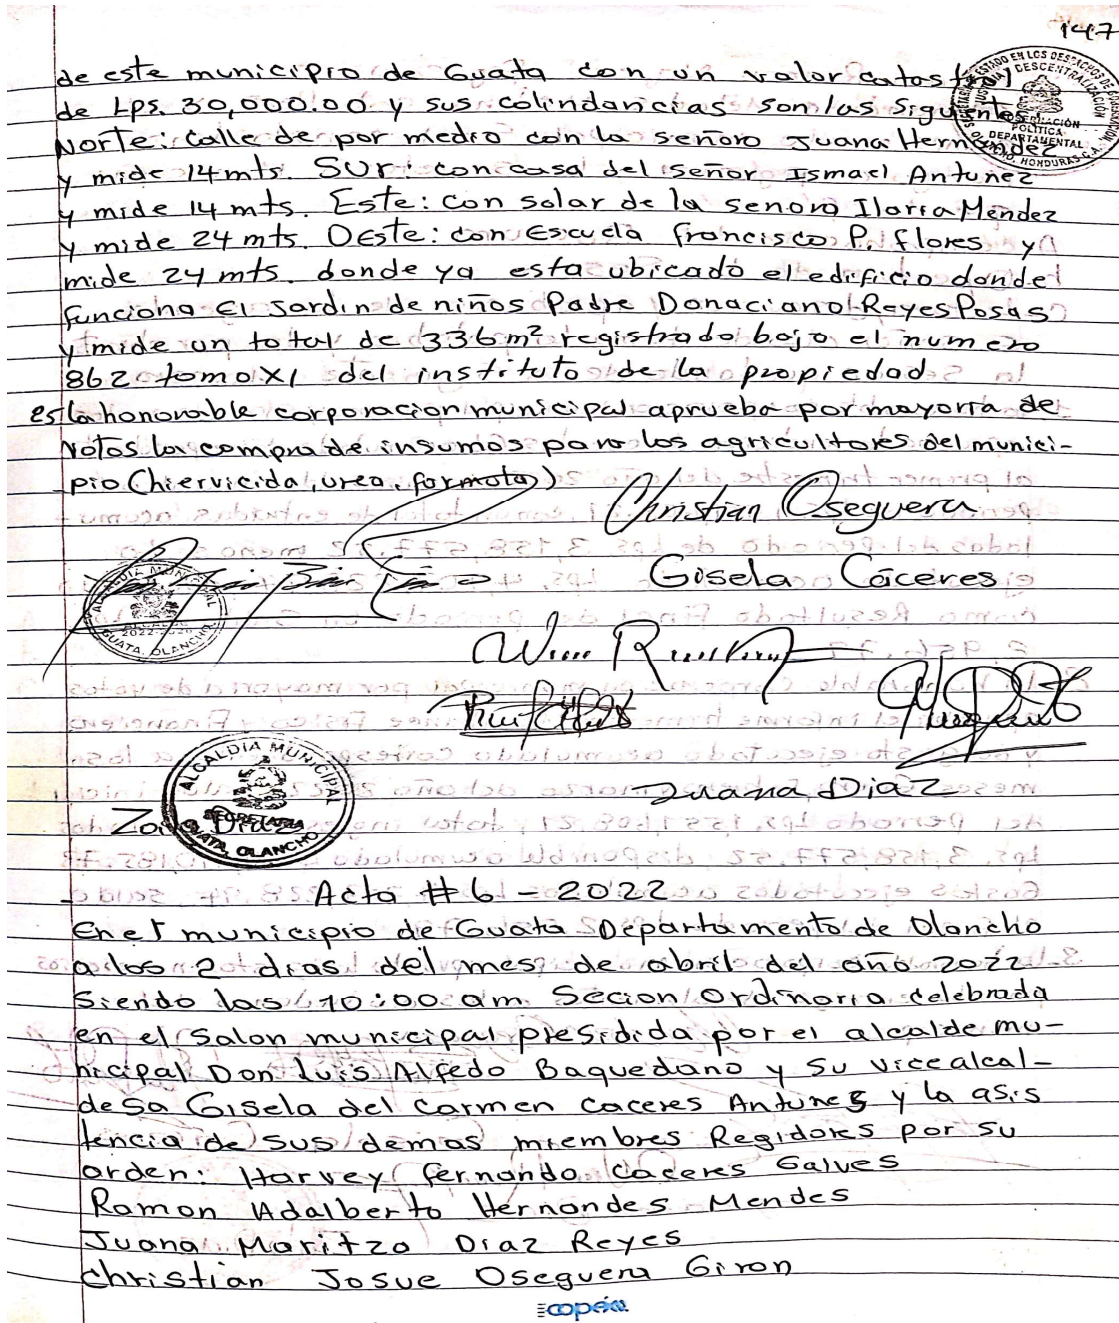 147
de este municipio de Guata con un valor catastral
de Lps. 30,000.00 y sus colindancias son las siguientes
Norte: Calle de por medio con la señora Juana Hernández
y mide 14 mts. Sur: con casa del señor Ismael Antunez
y mide 14 mts. Este: con solar de la senora Ilaria Méndez
y mide 24 mts. Oeste: con Escuela francisco P. flores y
mide 24 mts. donde ya esta ubicado el edificio donde
funciona El Jardin de niños Padre Donaciano Reyes Posas
y mide un total de 336 m² registrado bajo el numero
862 tomo XI del instituto de la propiedad
25 La honorable corporacion municipal aprueba por mayoria de
votos la compra de insumos para los agricultores del munici-
pio (hiervicida, urea, formota)
Christian Oseguera
Gisela Cáceres
ALCALDIA MUNICIPAL
2022-2026
GUATA, OLANCHO
Juana Diaz
ALCALDIA MUNICIPAL
SECRETARIA
GUATA, OLANCHO
Zoila Diaz
Acta #6 - 2022
En el municipio de Guata Departamento de Olancho
a los 2 dias del mes de abril del año 2022
Siendo las 10:00 am Secion Ordinaria celebrada
en el Salon municipal presidida por el alcalde mu-
nicipal Don Luis Alfedo Baquedano y su vice alcal-
desa Gisela del Carmen Caceres Antunes y la asis
tencia de sus demas miembres Regidores por su
orden: Harvey fernando Caceres Galves
Ramon Adalberto Hernandes Mendes
Juana Maritza Diaz Reyes
Christian Josue Oseguera Giron
copán